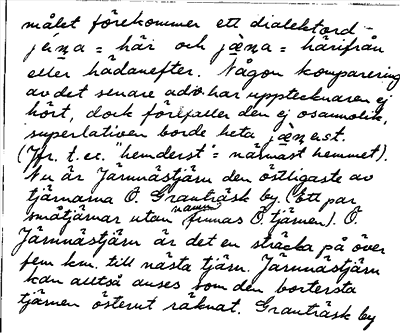 målet förekommer ett dialektord –
jä́na = här och jä̀na = härifrån
eller hädanefter. Någon komparering
av det senare adv. har upptecknaren ej
hört, dock förefaller den ej osannolik,
superlativen borde heta jä̀nast.
(Jfr. t. ex. "hemderst" = närmast hemmet).
Nu är Järmnästjärn den östligaste av
tjärnarna Ö. Granträsk by. (Ett par
småtjärnar utan namn finnas Ö. tjärnen). Ö.
Järmnästjärn är det en sträcka på över
fem km. till nästa tjärn. Järmnästjärn
kan alltså anses som den bortersta
tjärnen österut räknat. Granträsk by